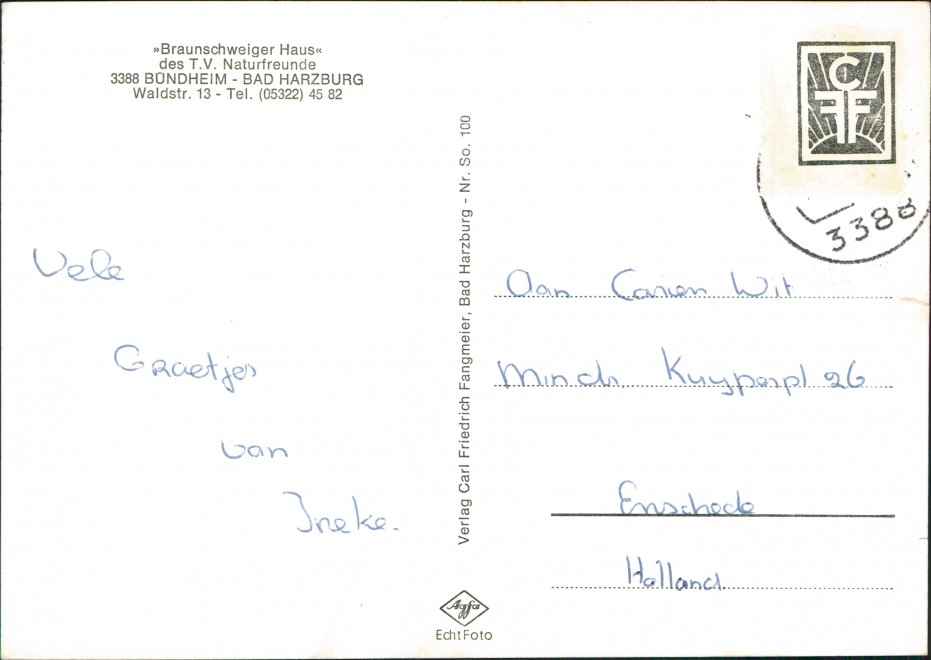 »Braunschweiger Haus«
des T.V. Naturfreunde
3388 BÜNDHEIM - BAD HARZBURG
Waldstr. 13 - Tel. (05322) 45 82
CFF
3388
Vele
Graetjes
van
Ineke.
Verlag Carl Friedrich Fangmeier, Bad Harzburg - Nr. So. 100
Aan Carien Wit
Mindr Kuyperpl 26
Enschede
Holland
Agfa
Echt Foto